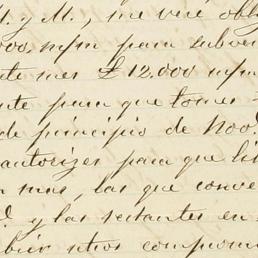 y M., me veré obl
000. m/m para subve
te mes £ 12.000 m/m
nte para que tomes
de principio de Nov.
autorizes para que li
mas, las que conve
y las restantes en
otros compromi